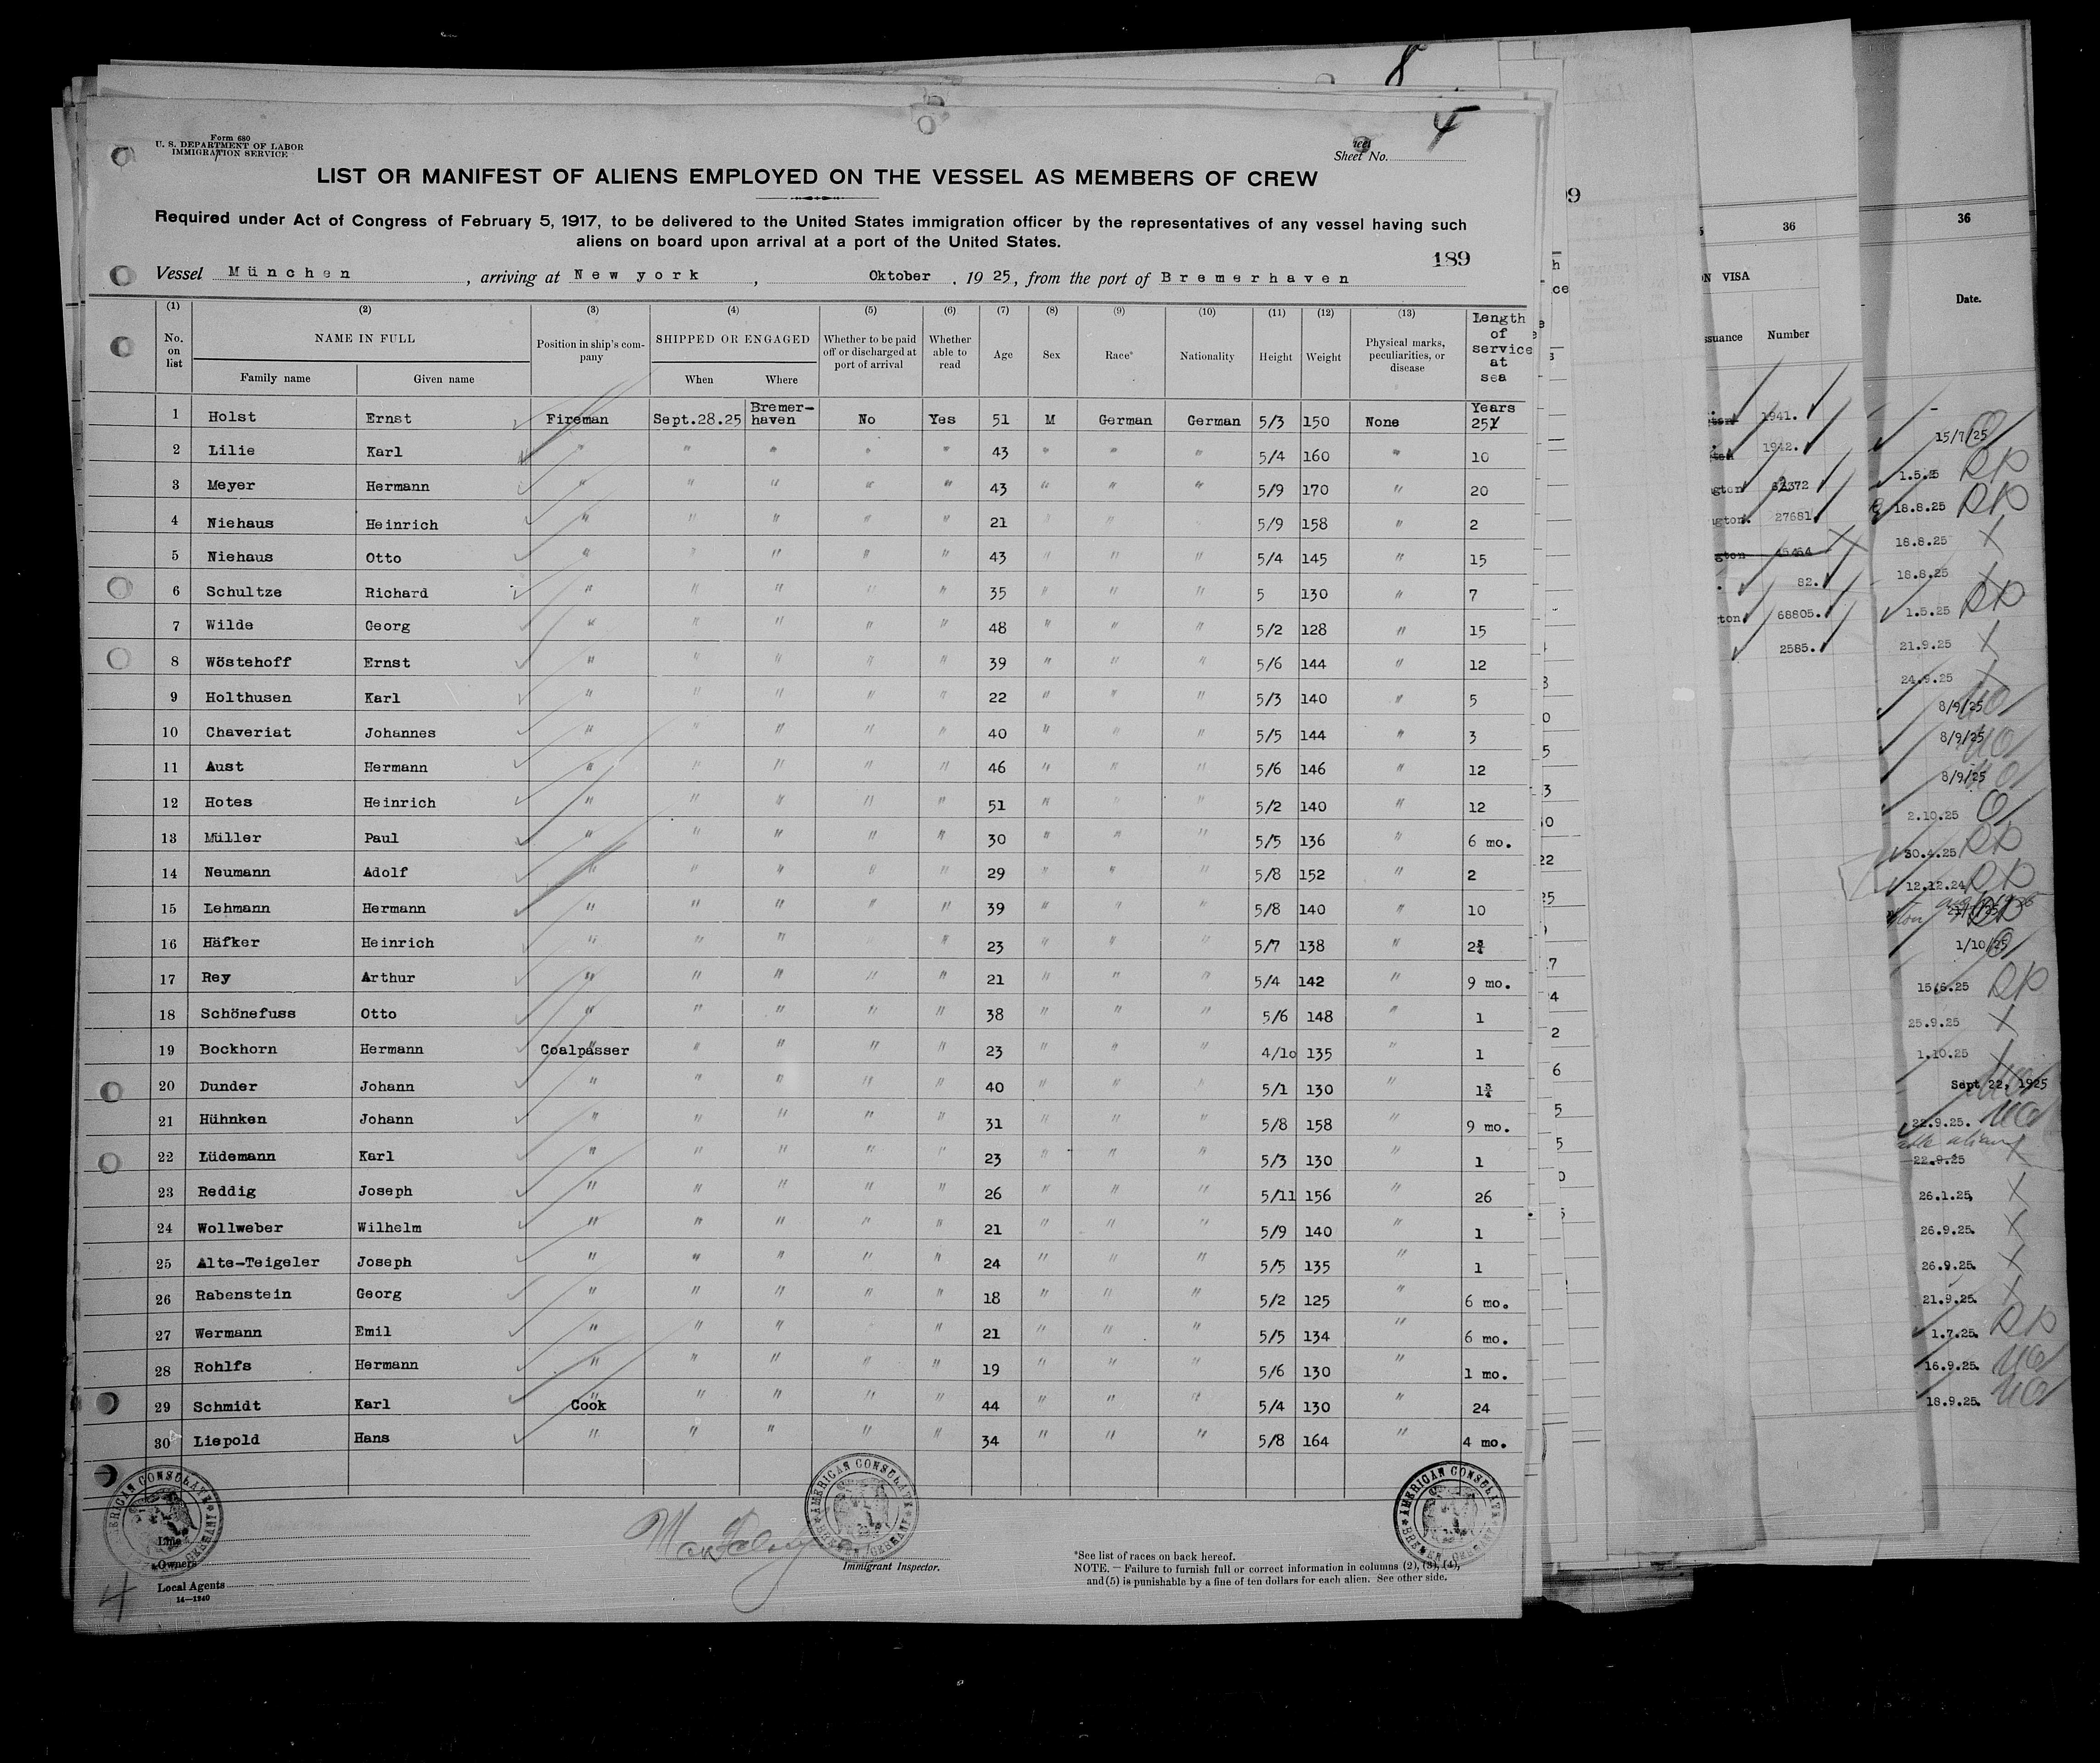 8
4
Form 680
U. S. DEPARTMENT OF LABOR
IMMIGRATION SERVICE
Sheet No.
LIST OR MANIFEST OF ALIENS EMPLOYED ON THE VESSEL AS MEMBERS OF CREW
Required under Act of Congress of February 5, 1917, to be delivered to the United States immigration officer by the representatives of any vessel having such
aliens on board upon arrival at a port of the United States.
189
Vessel München, arriving at New york, Oktober, 19 25, from the port of Bremerhaven
(1) (2) (3) (4) (5) (6) (7) (8) (9) (10) (11) (12) (13)
No. on list NAME IN FULL Family name Given name Position in ship's company SHIPPED OR ENGAGED When Where Whether to be paid off or discharged at port of arrival Whether able to read Age Sex Race* Nationality Height Weight Physical marks, peculiarities, or disease Length of service at sea
1 Holst Ernst Fireman Sept.28.25 Bremer-haven No Yes 51 M German German 5/3 150 None Years 25
2 Lilie Karl " " " " " 43 " " " 5/4 160 " 10
3 Meyer Hermann " " " " " 43 " " " 5/9 170 " 20
4 Niehaus Heinrich " " " " " 21 " " 5/9 158 " 2
5 Niehaus Otto " " " " " 43 " " " 5/4 145 " 15
6 Schultze Richard " " " " " 35 " " " 5 130 " 7
7 Wilde Georg " " " " " 48 " " " 5/2 128 " 15
8 Wöstehoff Ernst " " " " " 39 " " " 5/6 144 " 12
9 Holthusen Karl " " " " " 22 " " " 5/3 140 " 5
10 Chaveriat Johannes " " " " " 40 " " " 5/5 144 " 3
11 Aust Hermann " " " " " 46 " " " 5/6 146 " 12
12 Hotes Heinrich " " " " " 51 " " " 5/2 140 " 12
13 Müller Paul " " " " " 30 " " " 5/5 136 " 6 mo.
14 Neumann Adolf " " " " " 29 " " " 5/8 152 " 2
15 Lehmann Hermann " " " " " 39 " " " 5/8 140 " 10
16 Häfker Heinrich " " " " 23 " " " 5/7 138 " 2¾
17 Rey Arthur " " " " " 21 " " " 5/4 142 " 9 mo.
18 Schönefuss Otto " " " " " 38 " " " 5/6 148 " 1
19 Bockhorn Hermann Coalpasser " " " " 23 " " " 4/10 135 " 1
20 Dunder Johann " " " " " 40 " " " 5/1 130 " 1¾
21 Hühnken Johann " " " " " 31 " " " 5/8 158 " 9 mo.
22 Lüdemann Karl " " " " " 23 " " " 5/3 130 " 1
23 Reddig Joseph " " " " " 26 " " " 5/11 156 " 26
24 Wollweber Wilhelm " " " " " 21 " " " 5/9 140 " 1
25 Alte-Teigeler Joseph " " " " " 24 " " " 5/5 135 " 1
26 Rabenstein Georg " " " " " 18 " " " 5/2 125 " 6 mo.
27 Wermann Emil " " " " 21 " " " 5/5 134 " 6 mo.
28 Rohlfs Hermann " " " " " 19 " " " 5/6 130 " 1 mo.
29 Schmidt Karl Cook " " " " 44 " " " 5/4 130 " 24
30 Liepold Hans " " " " " 34 " " " 5/8 164 " 4 mo.
AMERICAN CONSULATE
BREMEN, GERMANY
AMERICAN CONSULATE
BREMEN, GERMANY
AMERICAN CONSULATE
BREMEN, GERMANY
Line
Owners
Local Agents
14—1240
4
Immigrant Inspector.
*See list of races on back hereof.
NOTE.—Failure to furnish full or correct information in columns (2), (3), (4),
and (5) is punishable by a fine of ten dollars for each alien. See other side.
36
VISA
Number
1941.
1942.
27681
82.
68805.
2585.
36
Date.
15/7/25
1.5.25
18.8.25
18.8.25
18.8.25
1.5.25
21.9.25
24.9.25
8/9/25
8/9/25
8/9/25
2.10.25
30.4.25
12.12.24
1/10/25
15.6.25
25.9.25
1.10.25
Sept 22, 1925
22.9.25.
22.9.25
26.1.25
26.9.25.
26.9.25.
21.9.25.
1.7.25.
16.9.25.
18.9.25.